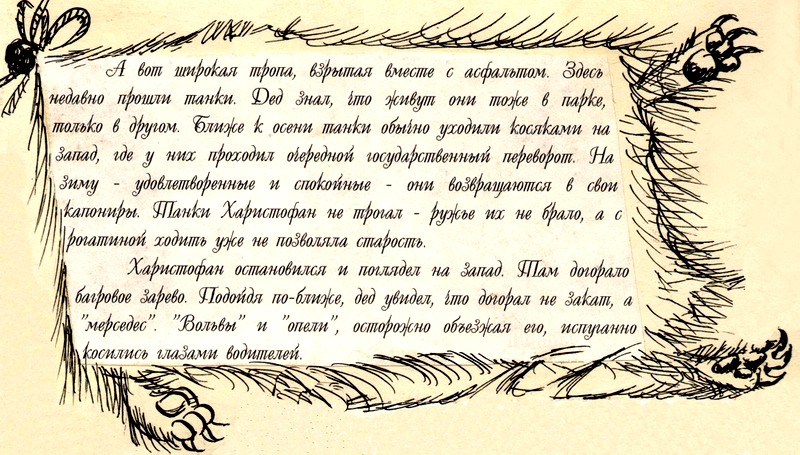 А вот широкая тропа, взрытая вместе с асфальтом. Здесь
недавно прошли танки. Дед знал, что живут они тоже в парке,
только в другом. Ближе к осени танки обычно уходили косяками на
запад, где у них проходил очередной государственный переворот. На
зиму - удовлетворенные и спокойные - они возвращаются в свои
капониры. Танки Харистофан не трогал - ружье их не брало, а с
рогатиной ходить уже не позволяла старость.
Харистофан остановился и поглядел на запад. Там догорало
багровое зарево. Подойдя по-ближе, дед увидел, что догорал не закат, а
"мерседес". "Вольвы" и "опели", осторожно объезжая его, испуганно
косились глазами водителей.